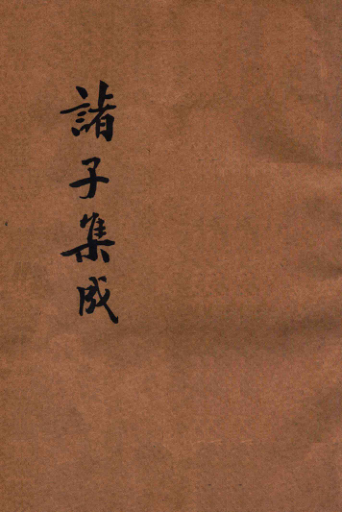 諸子集成